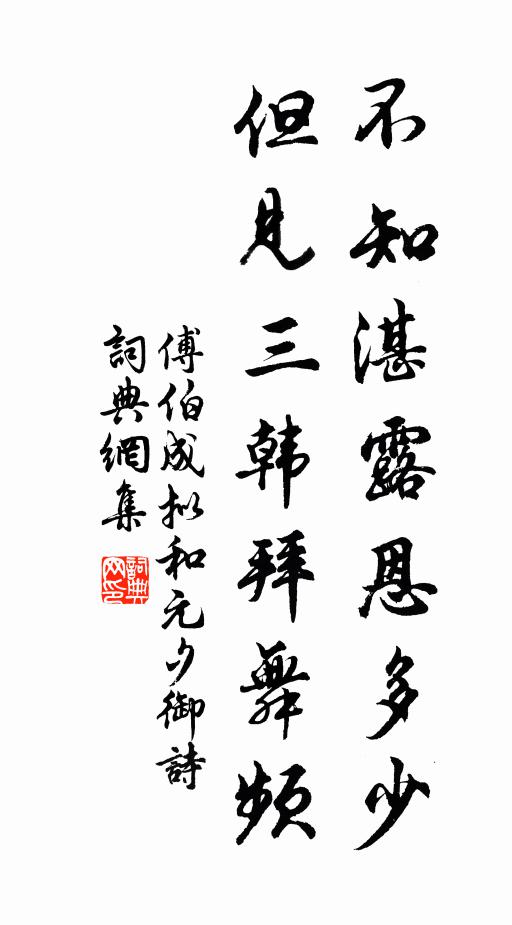 不知湛露恩多少
但見三韩拜舞頻
傅伯成拟和元夕御詩
詞典網集
詞典网印